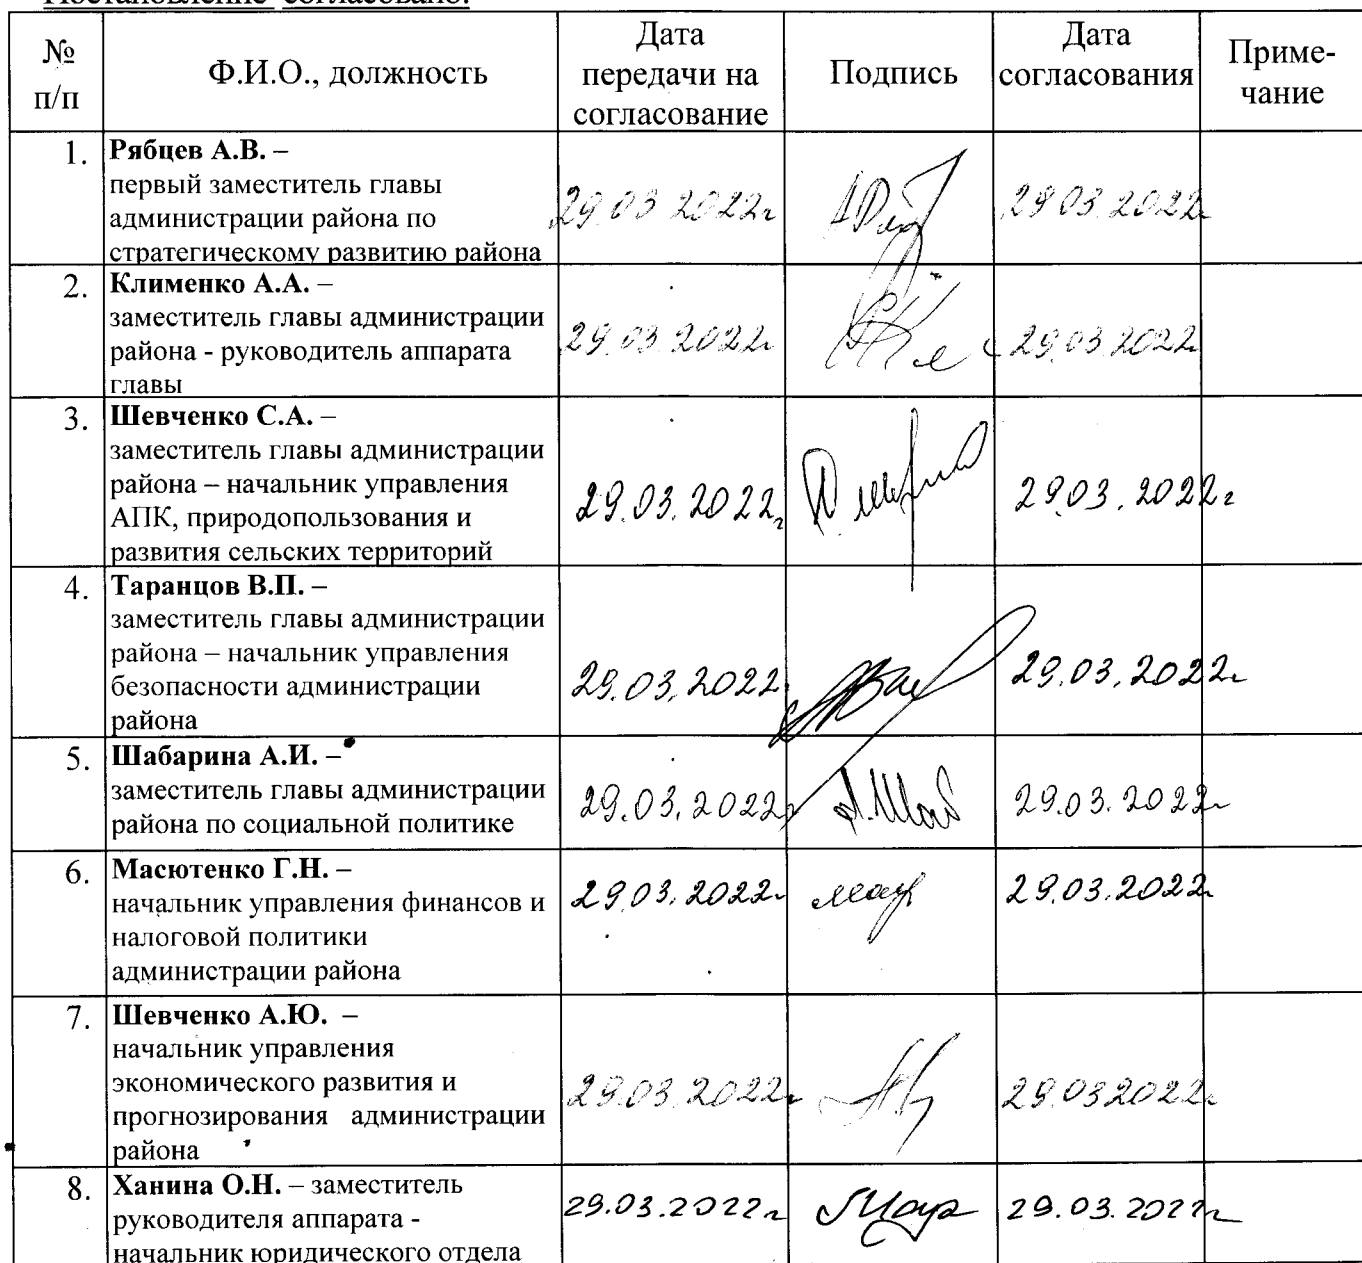 Постановление согласовано:
№ п/п
Ф.И.О., должность
Дата передачи на согласование
Подпись
Дата согласования
Приме-
чание
1.
Рябцев А.В. –
первый заместитель главы
администрации района по
стратегическому развитию района
29.03 2022г
29 03.2022г
2.
Клименко А.А. –
заместитель главы администрации
района - руководитель аппарата
главы
29.03.2022г
29.03.2022
3.
Шевченко С.А. –
заместитель главы администрации
района – начальник управления
АПК, природопользования и
развития сельских территорий
29.03.2022г
29.03.2022г
4.
Таранцов В.П. –
заместитель главы администрации
района – начальник управления
безопасности администрации
района
29.03.2022
29.03.2022г
5.
Шабарина А.И. –
заместитель главы администрации
района по социальной политике
29.03.2022г
А.Шаб
29.03.2022г
6.
Масютенко Г.Н. –
начальник управления финансов и
налоговой политики
администрации района
29.03.2022г
29.03.2022г
7.
Шевченко А.Ю. –
начальник управления
экономического развития и
прогнозирования администрации
района
29.03.2022г
29.03 2022г
8.
Ханина О.Н. – заместитель
руководителя аппарата -
начальник юридического отдела
29.03.2022г
29.03.2022г